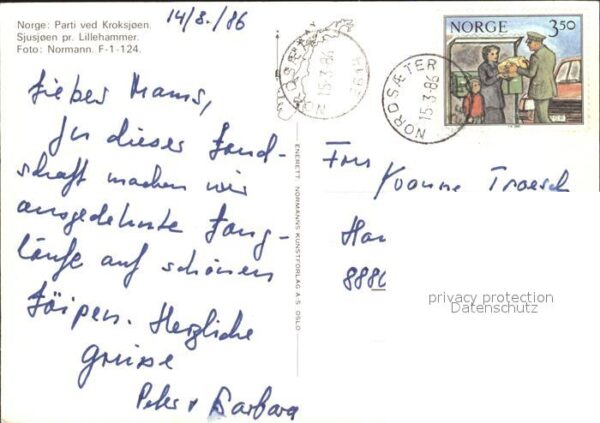 Norge: Parti ved Kroksjøen.
Sjusjøen pr. Lillehammer.
Foto: Normann. F-1-124.
14/3./86
Lieber Mams,
In dieser Land-
schaft machen wir
ausgedehnte Lang-
läufe auf schönen
Loipen. Herzliche
Grüsse
Peter + Barbara
ENERETT: NORMANNS KUNSTFORLAG A.S. OSLO
NORDSÆTER
15.3.86
NORGE 3,50
NORDSÆTER
15.3.86
Frau
Yvonne Troesch
8880
privacy protection
Datenschutz